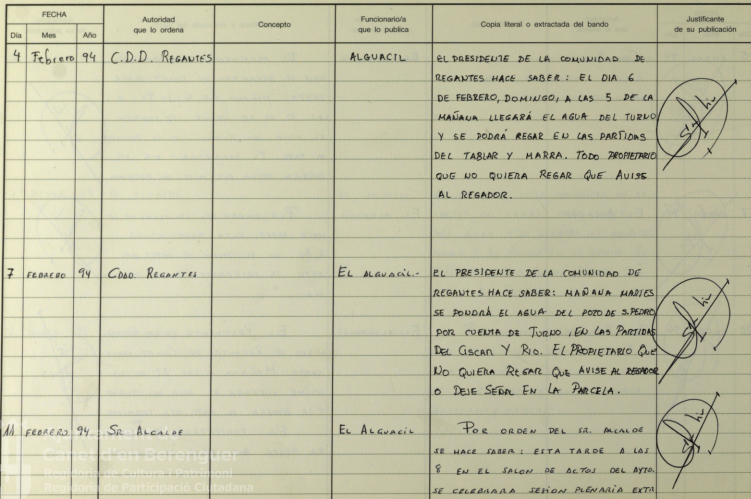 FECHA
Día Mes Año
Autoridad
que lo ordena
Concepto
Funcionario/a
que lo publica
Copia literal o extractada del bando
Justificante
de su publicación
4 Febrero 94 C.D.D. REGANTES ALGUACIL EL PRESIDENTE DE LA COMUNIDAD DE
REGANTES HACE SABER: EL DIA 6
DE FEBRERO, DOMINGO, A LAS 5 DE LA
MAÑANA LLEGARÁ EL AGUA DEL TURNO
Y SE PODRÁ REGAR EN LAS PARTIDAS
DEL TABLAR Y MARRA. TODO PROPIETARIO
QUE NO QUIERA REGAR QUE AVISE
AL REGADOR.
7 FEBRERO 94 CDAD. REGANTES EL ALGUACIL.- EL PRESIDENTE DE LA COMUNIDAD DE
REGANTES HACE SABER: MAÑANA MARTES
SE PONDRÁ EL AGUA DEL POZO DE S. PEDRO
POR CUENTA DE TURNO, EN LAS PARTIDAS
DEL GISCAR Y RIO. EL PROPIETARIO QUE
NO QUIERA REGAR QUE AVISE AL REGADOR
O DEJE SEÑAL EN LA PARCELA.
11 FEBRERO 94 SR. ALCALDE EL ALGUACIL POR ORDEN DEL SR. ALCALDE
SE HACE SABER: ESTA TARDE A LAS
8 EN EL SALON DE ACTOS DEL AYTO.
SE CELEBRARA SESION PLENARIA EXTR
Canet d'en Berenguer
Regidoria de Cultura i Patrimoni
Regidoria de Participació Ciutadana